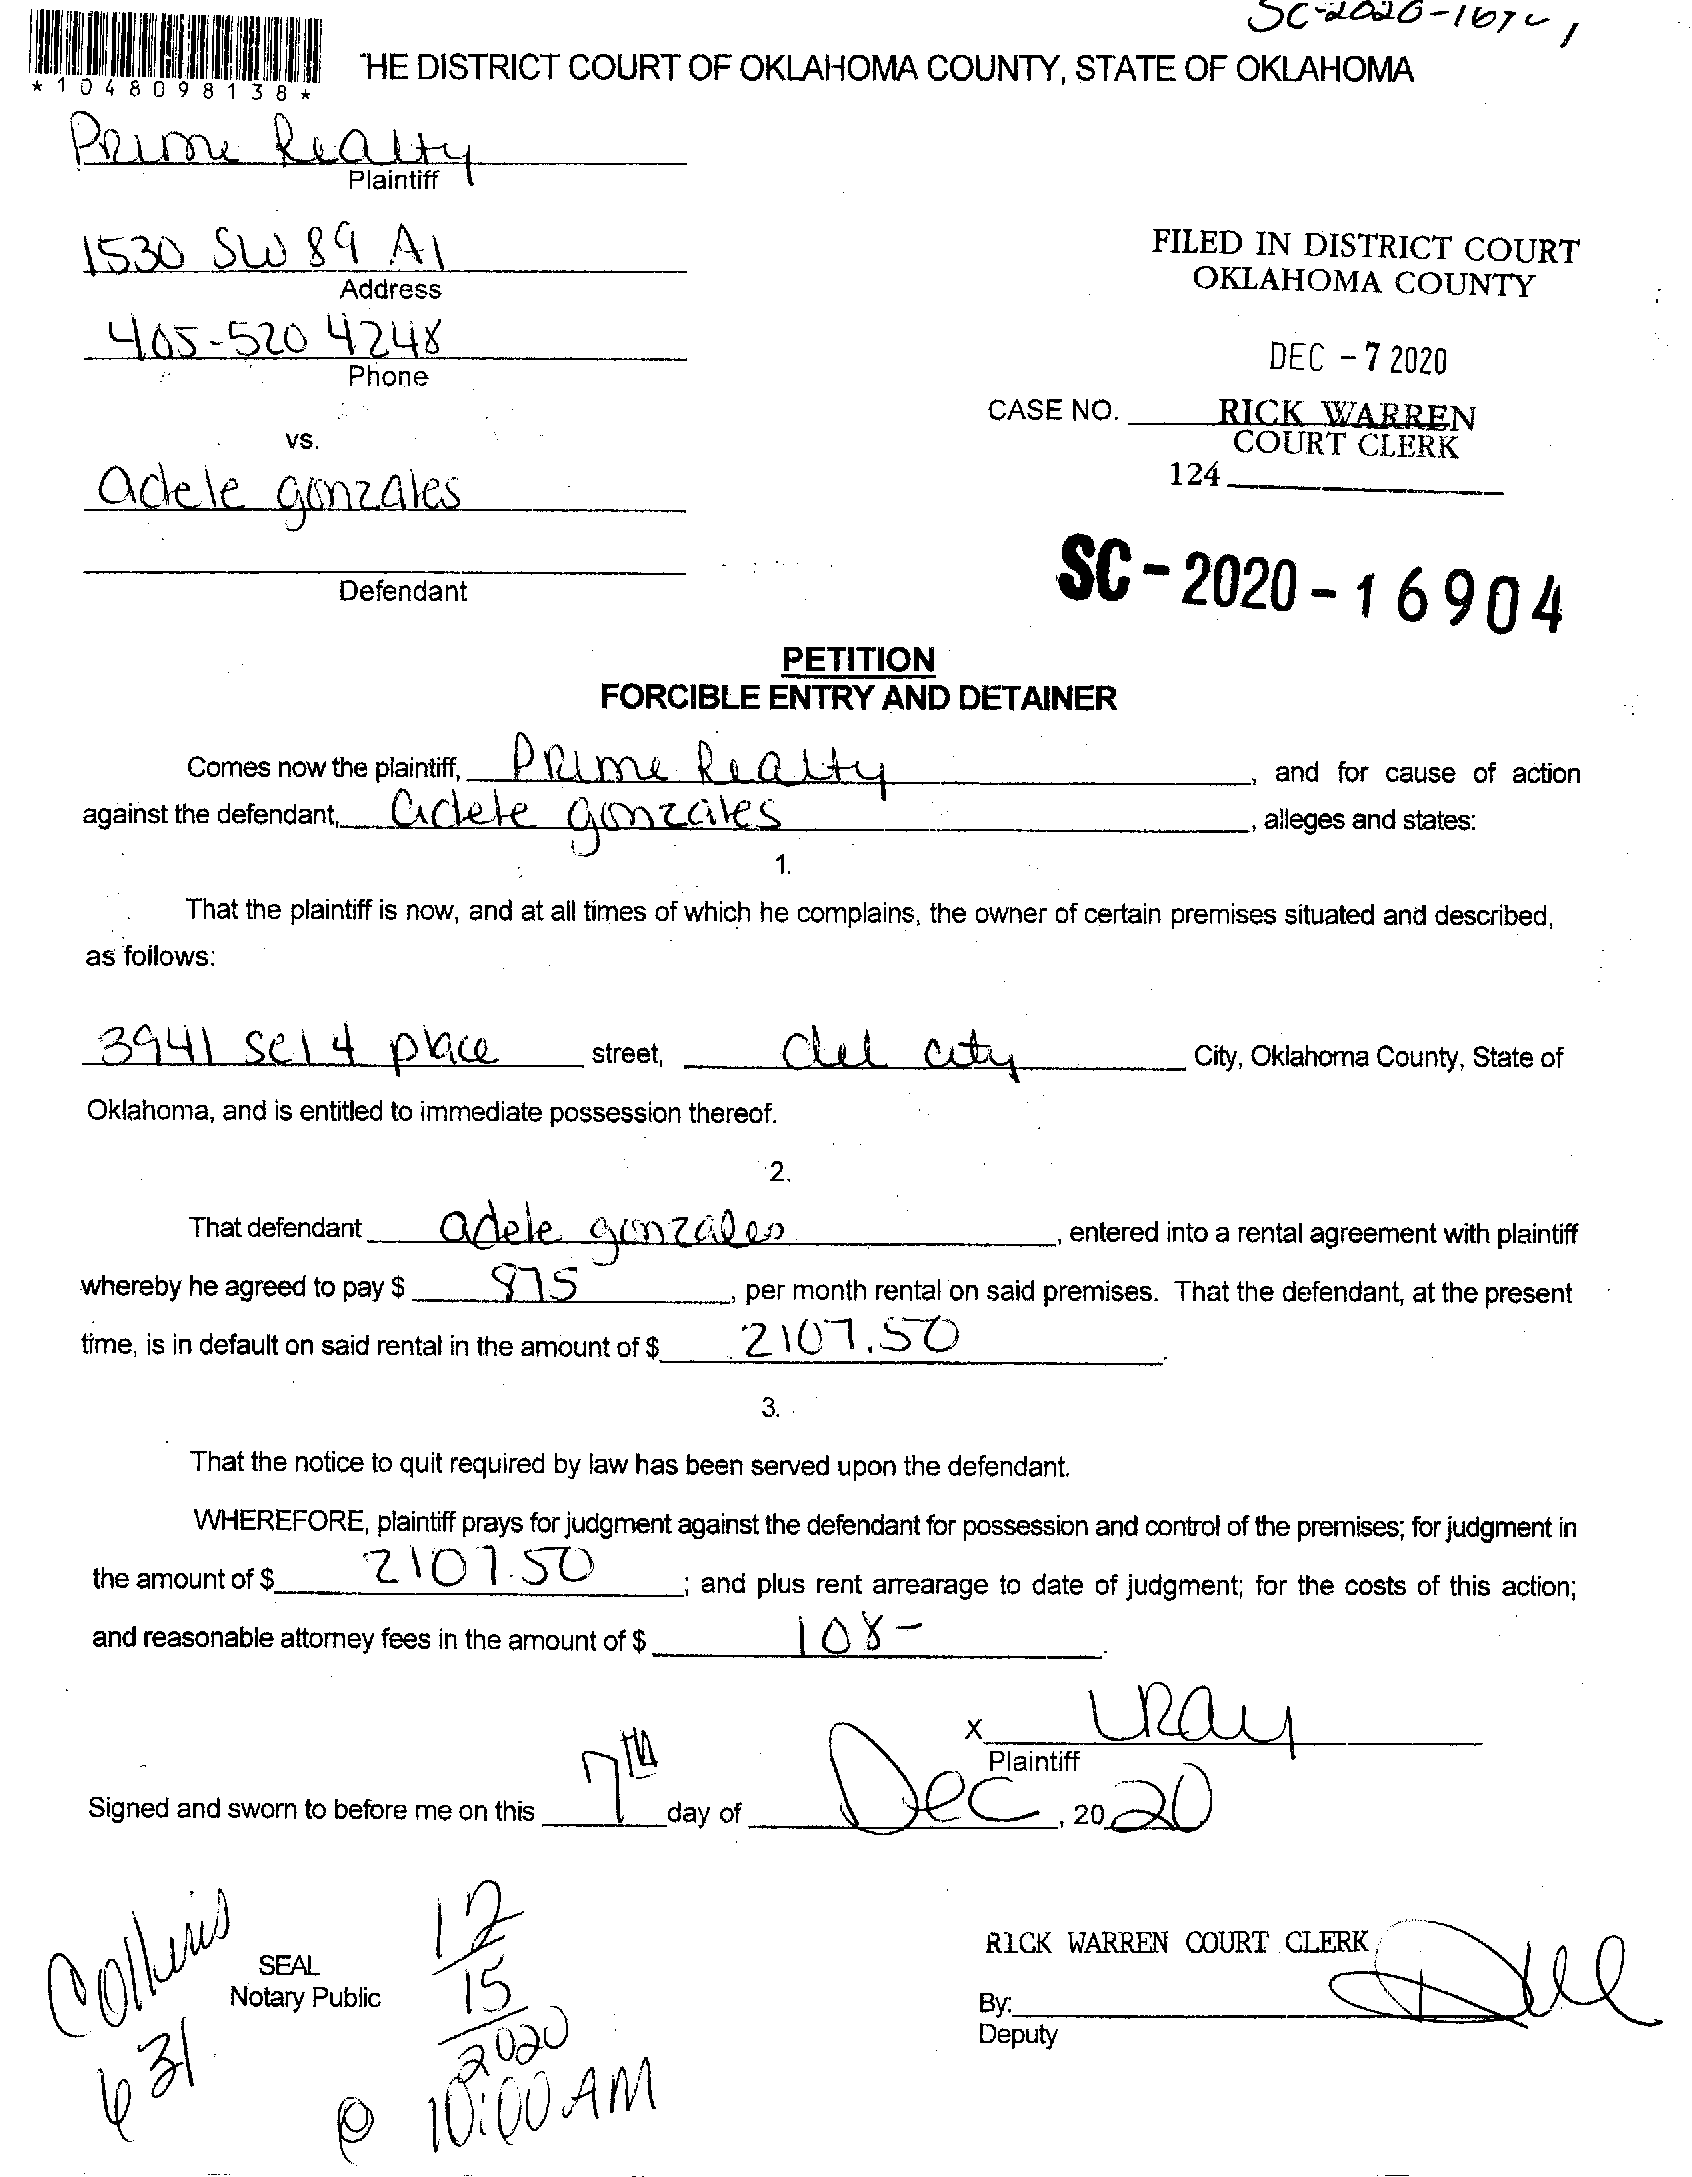 SC-2020-
*1048098138*
THE DISTRICT COURT OF OKLAHOMA COUNTY, STATE OF OKLAHOMA
Prime Realty
Plaintiff
1530 SW 89 A1
Address
405-520 4248
Phone
vs.
adele gonzales
Defendant
FILED IN DISTRICT COURT
OKLAHOMA COUNTY
DEC - 7 2020
CASE NO. RICK WARREN
COURT CLERK
124
SC-2020-16904
PETITION
FORCIBLE ENTRY AND DETAINER
Comes now the plaintiff, Prime Realty, and for cause of action
against the defendant, adele gonzales, alleges and states:
1.
That the plaintiff is now, and at all times of which he complains, the owner of certain premises situated and described,
as follows:
3941 se 14 place street, del city City, Oklahoma County, State of
Oklahoma, and is entitled to immediate possession thereof.
2.
That defendant adele gonzales, entered into a rental agreement with plaintiff
whereby he agreed to pay $ 875, per month rental on said premises. That the defendant, at the present
time, is in default on said rental in the amount of $ 2107.50.
3.
That the notice to quit required by law has been served upon the defendant.
WHEREFORE, plaintiff prays for judgment against the defendant for possession and control of the premises; for judgment in
the amount of $ 2107.50; and plus rent arrearage to date of judgment; for the costs of this action;
and reasonable attorney fees in the amount of $ 108-.
x LRay
Plaintiff
Signed and sworn to before me on this 7th day of Dec, 2020
Collins
631
SEAL
Notary Public
12
15
2020
@ 10:00 AM
RICK WARREN COURT CLERK
By:
Deputy